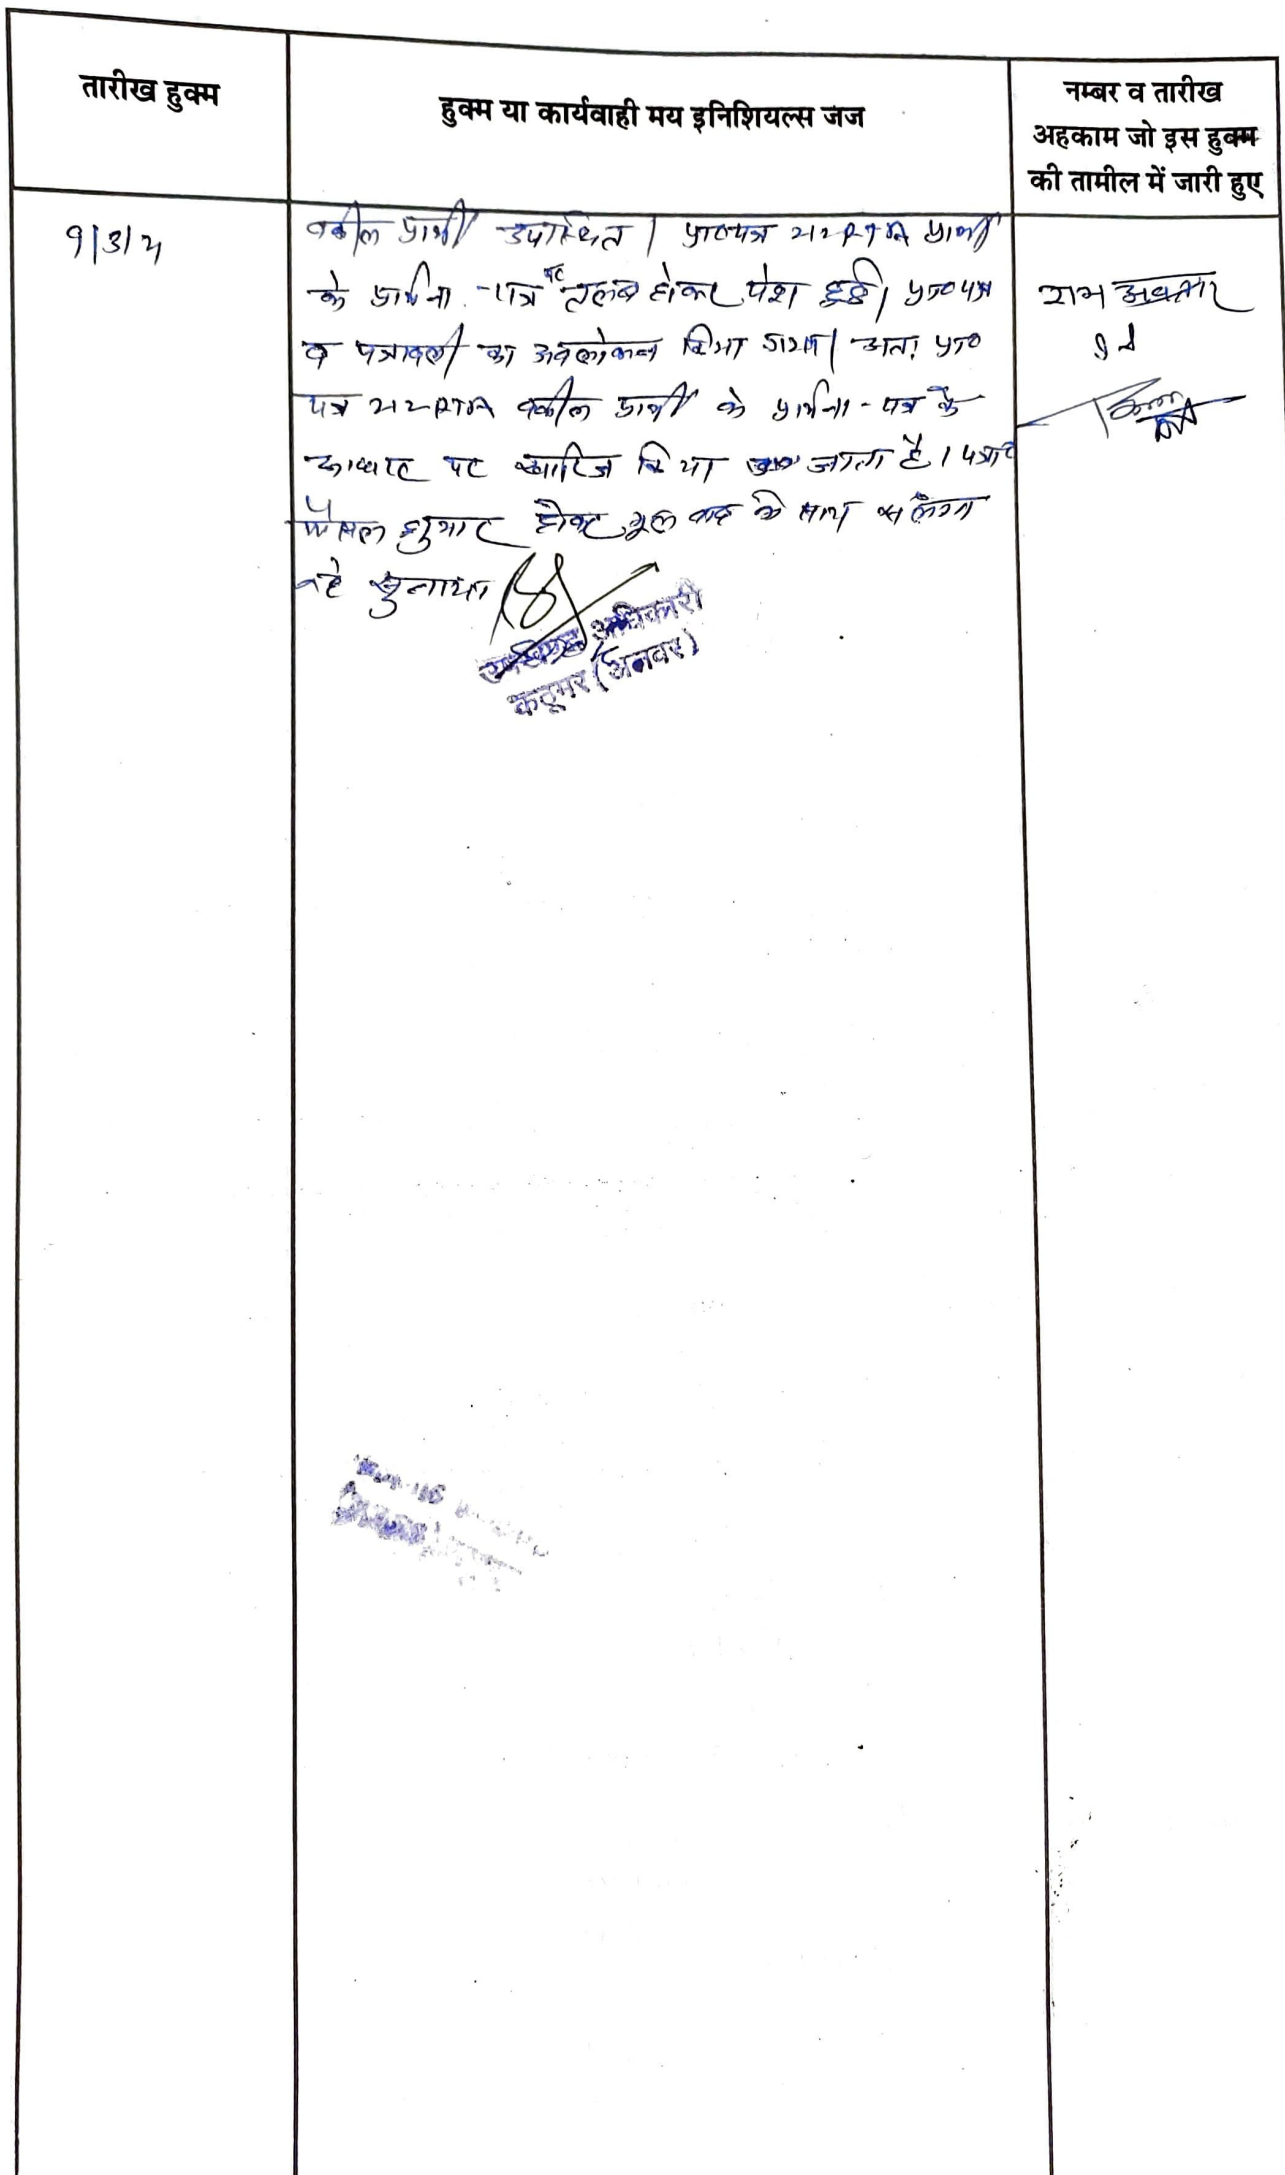 तारीख हुक्म
हुक्म या कार्यवाही मय इनिशियल्स जज
नम्बर व तारीख
अहकाम जो इस हुक्म
की तामील में जारी हुए
वकील प्रार्थी उपस्थित। प्रा०पत्र २१२ RTA प्रार्थी
के प्रार्थना-पत्र पर तलब होकर पेश हुई। प्रा०पत्र
व पत्रावली का अवलोकन किया गया। अतः प्रा०
पत्र २१२ RTA वकील प्रार्थी के प्रार्थना-पत्र के
आधार पर खारिज किया जाता है। पत्रा०
फैसल शुमार होकर मूल वाद के साथ संलग्न
रहे सुनाया
राम अवतार
उपखण्ड अधिकारी
कठूमर (अलवर)